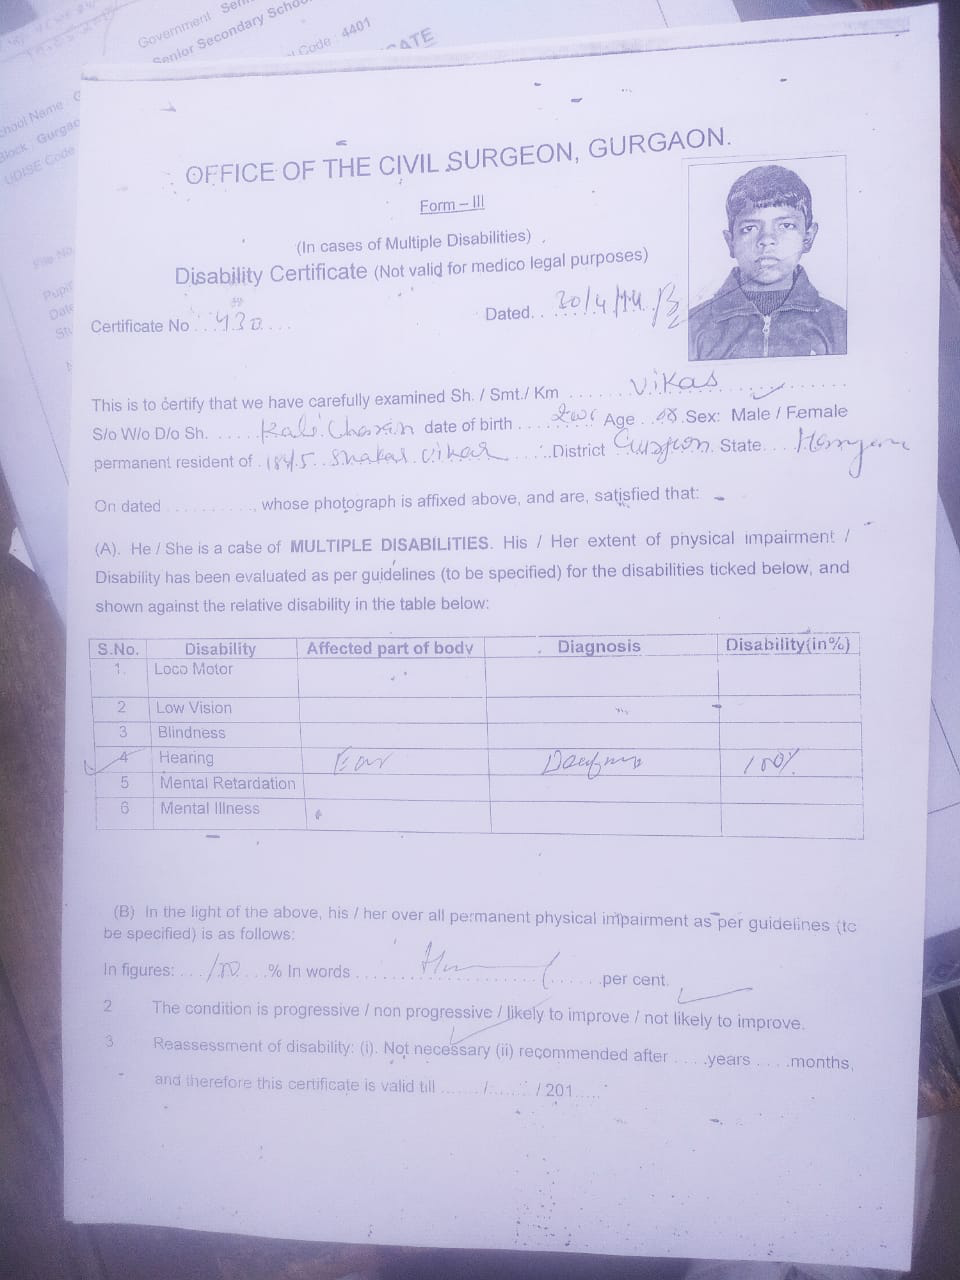 Government
Senior Secondary School
Code : 4401
School Name
Block : Gurgao
UDISE Code
File No.
Pupil
OFFICE OF THE CIVIL SURGEON, GURGAON.
Form – III
(In cases of Multiple Disabilities)
Disability Certificate (Not valid for medico legal purposes)
Certificate No ...430.... Dated...30/4/14
This is to certify that we have carefully examined Sh. / Smt./ Km ......Vikas..........
S/o W/o D/o Sh. .....Kali Charan date of birth ..... Age ... Sex: Male / Female
permanent resident of .1845.. Vihar ...District Gurgaon State....Haryana
On dated .........., whose photograph is affixed above, and are, satisfied that:
(A). He / She is a case of MULTIPLE DISABILITIES. His / Her extent of physical impairment /
Disability has been evaluated as per guidelines (to be specified) for the disabilities ticked below, and
shown against the relative disability in the table below:
S.No. Disability Affected part of body Diagnosis Disability(in%)
1. Loco Motor
2 Low Vision
3 Blindness
4 Hearing Ear Deafness 100%
5 Mental Retardation
6 Mental Illness
(B) In the light of the above, his / her over all permanent physical impairment as per guidelines (to
be specified) is as follows:
In figures: ...100...% In words ..................per cent.
2 The condition is progressive / non progressive / likely to improve / not likely to improve.
3 Reassessment of disability: (i). Not necessary (ii) recommended after .....years .....months,
and therefore this certificate is valid till ......./......./ 201.....